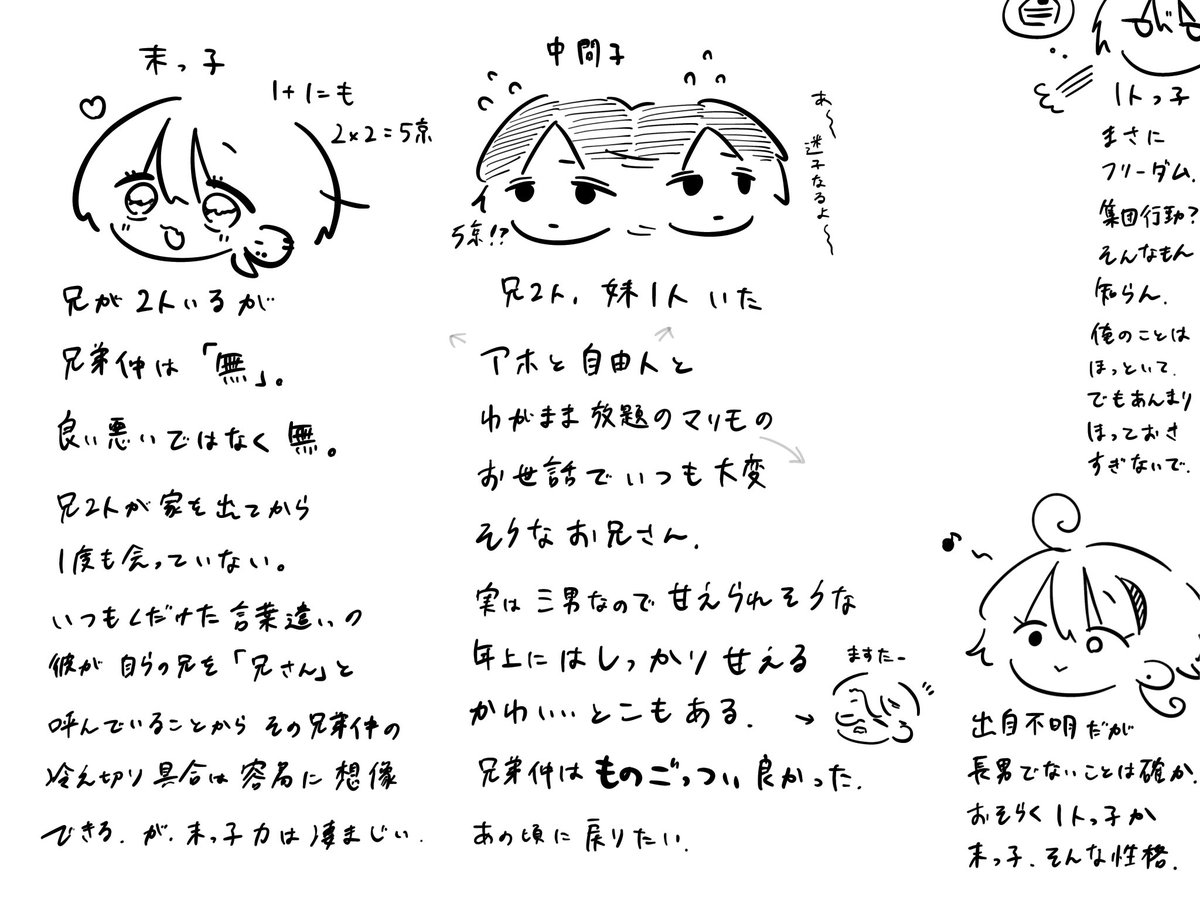 末っ子
1+1=も
2×2=5京
兄が2人いるが
兄弟仲は「無」。
良い悪いではなく無。
兄2人が家を出てから
1度も会っていない。
いつもくだけた言葉遣いの
彼が自らの兄を「兄さん」と
呼んでいることからその兄弟仲の
冷え切り具合は容易に想像
できる.が.末っ子力は凄まじい.
中間子
あ〜〜
迷子なるよ〜〜
5京!?
兄2人,妹1人いた
アホと自由人と
わがまま放題のマリモの
お世話でいつも大変
そうなお兄さん.
実は三男なので甘えられそうな
年上にはしっかり甘える
かわいいとこもある.
ますたー
兄弟仲はものごっつい良かった.
あの頃に戻りたい.
1人っ子
まさに
フリーダム.
集団行動?
そんなもん
知らん.
俺のことは
ほっといて.
でもあんまり
ほっておき
すぎないで.
出自不明だが
長男でないことは確か.
おそらく1人っ子か
末っ子.そんな性格.